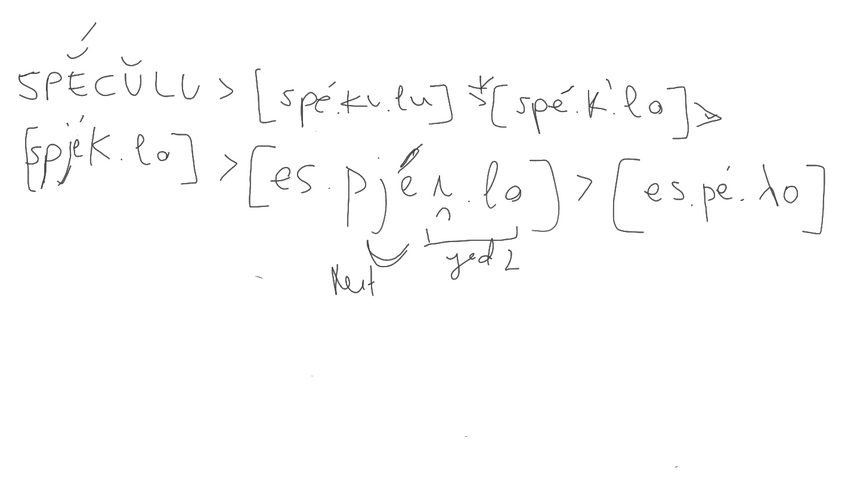 SPĔ́CŬLU > [spé.ku.lu] > [spé.k'.lo] >
[spjék.lo] > [es.pjé i̯.lo] > [es.pé.λo]
yod 2